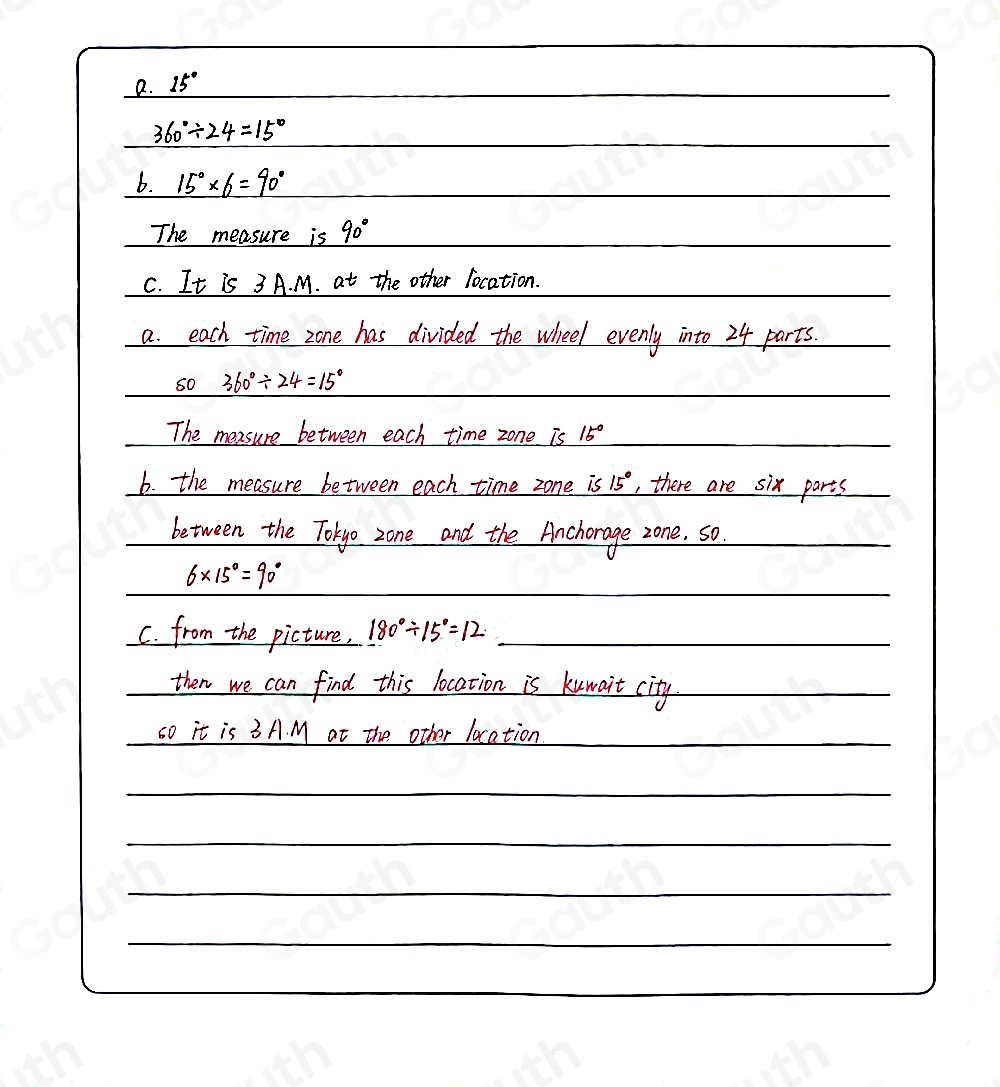 a. 15°
360°÷24=15°
b. 15°×6=90°
The measure is 90°
C. It is 3 A.M. at the other location.
a. each time zone has divided the wheel evenly into 24 parts.
so 360°÷24=15°
The measure between each time zone is 15°
b. the measure between each time zone is 15°, there are six parts
between the Tokyo zone and the Anchorage zone. so.
6×15°=90°
C. from the picture, 180°÷15°=12
then we can find this location is kuwait city.
so it is 3 A.M at the other location.